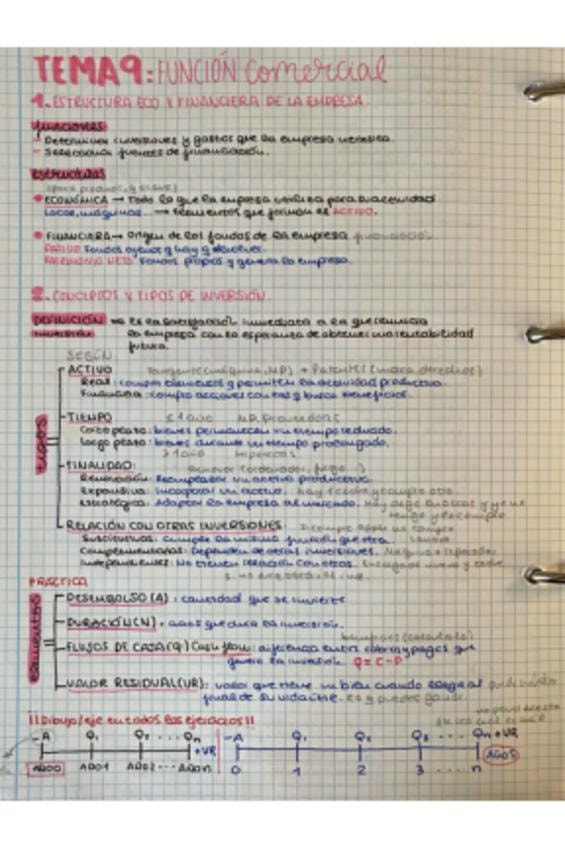 TEMA 9: FUNCIÓN comercial
1. ESTRUCTURA ECO Y FINANCIERA DE LA EMPRESA.
funciones
- Determinar inversiones y gastos que la empresa necesita.
- Seleccionar fuentes de financiación.
estructuras
ECONÓMICA → Todo lo que la empresa utiliza para su actividad
Locos, máquinas. → elementos que forman el ACTIVO.
FINANCIERA → origen de los fondos de la empresa financiación
PASIVO Fondos ajenos q hay q devolver.
PATRIMONIO NETO Fondos propios q genera la empresa.
2. CONCEPTOS Y TIPOS DE INVERSIÓN.
DEFINICIÓN → Es la satisfacción inmediata a la que renuncia
inversión la empresa con la esperanza de obtener una rentabilidad
futura.
SEGÚN
tipos
ACTIVO
Real: compra elementos q permiten la actividad productiva.
Financiera: compra acciones con tas q busca beneficios.
TIEMPO ≤ 1 año MP, Proveedores
Corto plazo: bienes permanecen un tiempo reducido.
Largo plazo: bienes durante un tiempo prolongado.
> 1 año Hipotecas
FINALIDAD:
Renovación: Reemplazar un activo productivo.
Expansiva: incorporar un activo.
Estratégica: Adaptar la empresa al mercado.
RELACIÓN CON OTRAS INVERSIONES:
Sustitutivas: cumplen la misma función que otra.
Complementarias: Dependen de otras inversiones.
Independientes: No tienen relación con otras.
PRÁCTICA
elementos
DESEMBOLSO (A): cantidad que se invierte
DURACIÓN (N): años que dura la inversión.
FLUJOS DE CAJA (Q) Cash flow: diferencia entre cobros y pagos que
genera la inversión. Q = C - P
VALOR RESIDUAL (VR): valor que tiene un bien cuando llega al
final de su vida útil.
¡¡Dibujo/eje en todos los ejercicios!!
-A Q₁ Q₂ .... Qn +VR
AÑO 0 AÑO 1 AÑO 2 ... AÑO n
-A Q₁ Q₂ Q₃ .... Qn + VR
0 1 2 3 .... n AÑOS